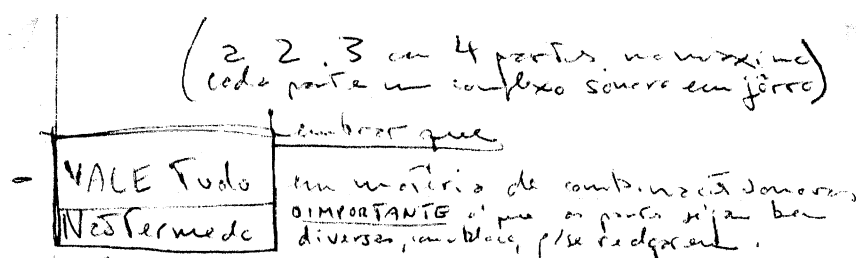 (a 2, 3 ou 4 partes, no máximo
cada parte um complexo sonoro em jôrro)
Lembrar que
- VALE TUdo em matéria de combinações sonoras,
Não Tema de OIMPORTANTE é que as partes sejam bem
diversas, p/se